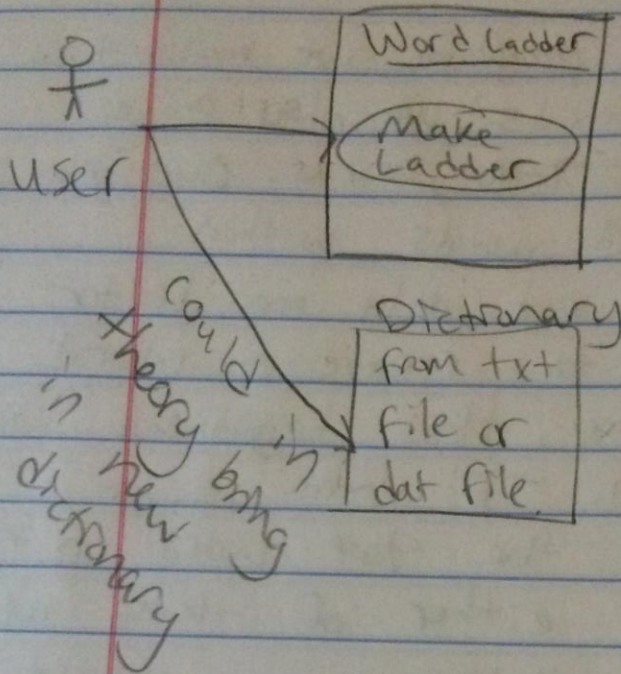 Word Ladder
Make
Ladder
User
Dictionary
from txt
file or
dat file.
could in
theory bring
in new
dictionary